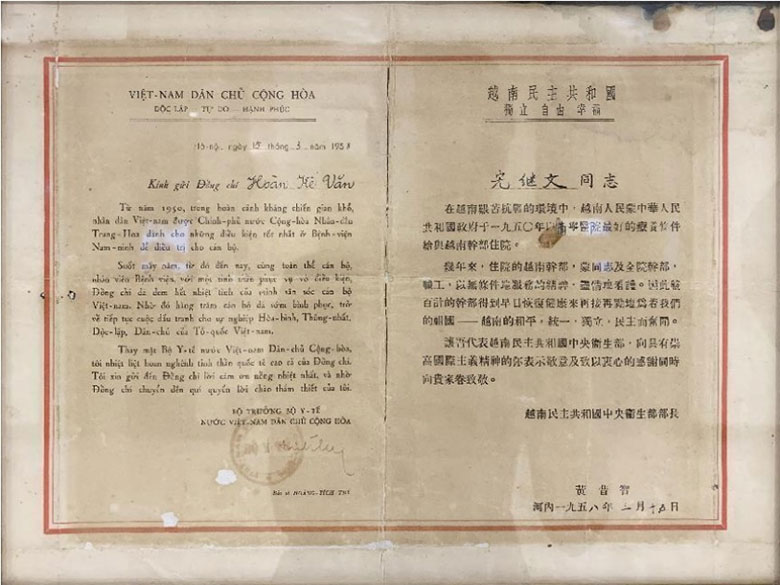 VIỆT-NAM DÂN CHỦ CỘNG HÒA
ĐỘC LẬP — TỰ DO — HẠNH PHÚC
Hà-nội, ngày 15 tháng 3 năm 1958
Kính gửi Đồng chí Hoàn Kế Văn
Từ năm 1950, trong hoàn cảnh kháng chiến gian khổ,
nhân dân Việt-nam được Chính-phủ nước Cộng-hòa Nhân-dân
Trung-Hoa dành cho những điều kiện tốt nhất ở Bệnh-viện
Nam-ninh để điều trị cho cán bộ.
Suốt mấy năm, từ đó đến nay, cùng toàn thể cán bộ,
nhân viên Bệnh viện, với một tinh thần phục vụ vô điều kiện,
Đồng chí đã đem hết nhiệt tình của mình săn sóc cán bộ
Việt-nam. Nhờ đó hàng trăm cán bộ đã sớm bình phục, trở
về tiếp tục cuộc đấu tranh cho sự nghiệp Hòa-bình, Thống-nhất,
Độc-lập, Dân-chủ của Tổ-quốc Việt-nam.
Thay mặt Bộ Y-tế nước Việt-nam Dân-chủ Cộng-hòa,
tôi nhiệt liệt hoan nghênh tinh thần quốc tế cao cả của Đồng chí.
Tôi xin gửi đến Đồng chí lời cám ơn nồng nhiệt nhất, và nhờ
Đồng chí chuyển đến quí quyến lời chào thắm thiết của tôi.
BỘ TRƯỞNG BỘ Y-TẾ
NƯỚC VIỆT-NAM DÂN CHỦ CỘNG HÒA
Bác sĩ HOÀNG-TÍCH TRÍ
越南民主共和國
獨立 自由 幸福
完继文 同志
在越南艱苦抗戰的環境中,越南人民蒙中華人民
共和國政府于一九五〇年 寧醫院最好的療養條件
給與越南幹部住院。
幾年來,住院的越南幹部,蒙同志及全院幹部,
職工,以無條件地服務的精神,盡情地看護。因此數
百計的幹部得到早日恢復健康來再接再勵地為着我們
的祖國——越南的和平,統一,獨立,民主而奮鬥。
讓吾代表越南民主共和國中央衛生部,向具有崇
高國際主義精神的你表示敬意及致以衷心的感謝同時
向貴家眷致敬。
越南民主共和國中央衛生部部長
黃昔智
河内一九五八年三月十五日